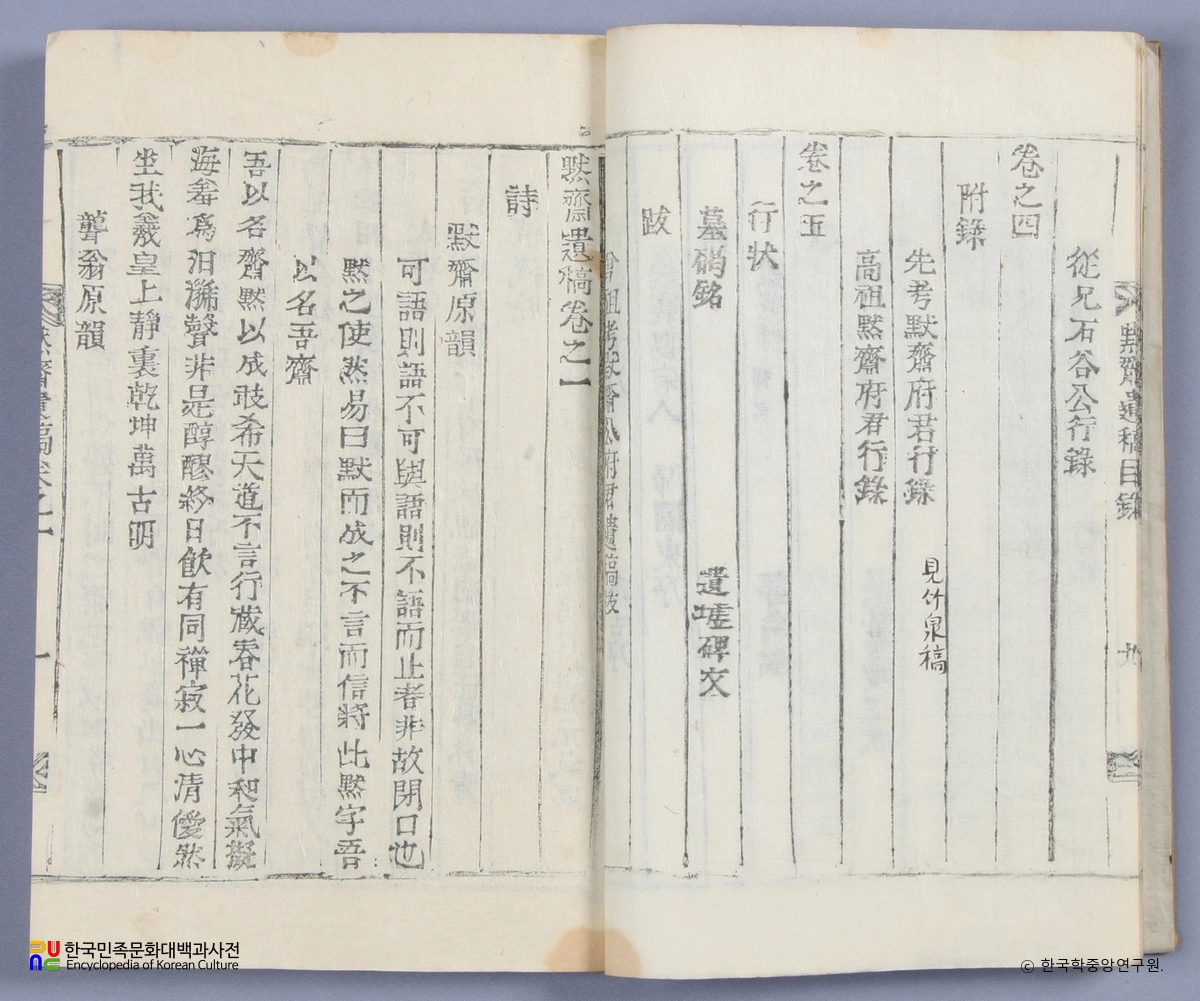 默齋遺稿目錄
九
從兄石谷公行錄
卷之四
附錄
先考默齋府君行錄 見竹泉稿
高祖默齋府君行錄
卷之五
行狀
墓碣銘 遺墟碑文
跋
默齋遺稿卷之一
詩
默齋原韻
可語則語不可與語則不語而止者非故閉口也
默之使然易曰默而成之不言而信將此默字吾
以名吾齋
吾以名齋默以成敢希天道不言行藏春花發中和氣擬
海爲汨聲非是醇醪終日飮有同禪寂一心清僾然
坐我羲皇上靜裏乾坤萬古明
聾翁原韻
默齋遺稿卷之一
一
한국민족문화대백과사전
Encyclopedia of Korean Culture
© 한국학중앙연구원.